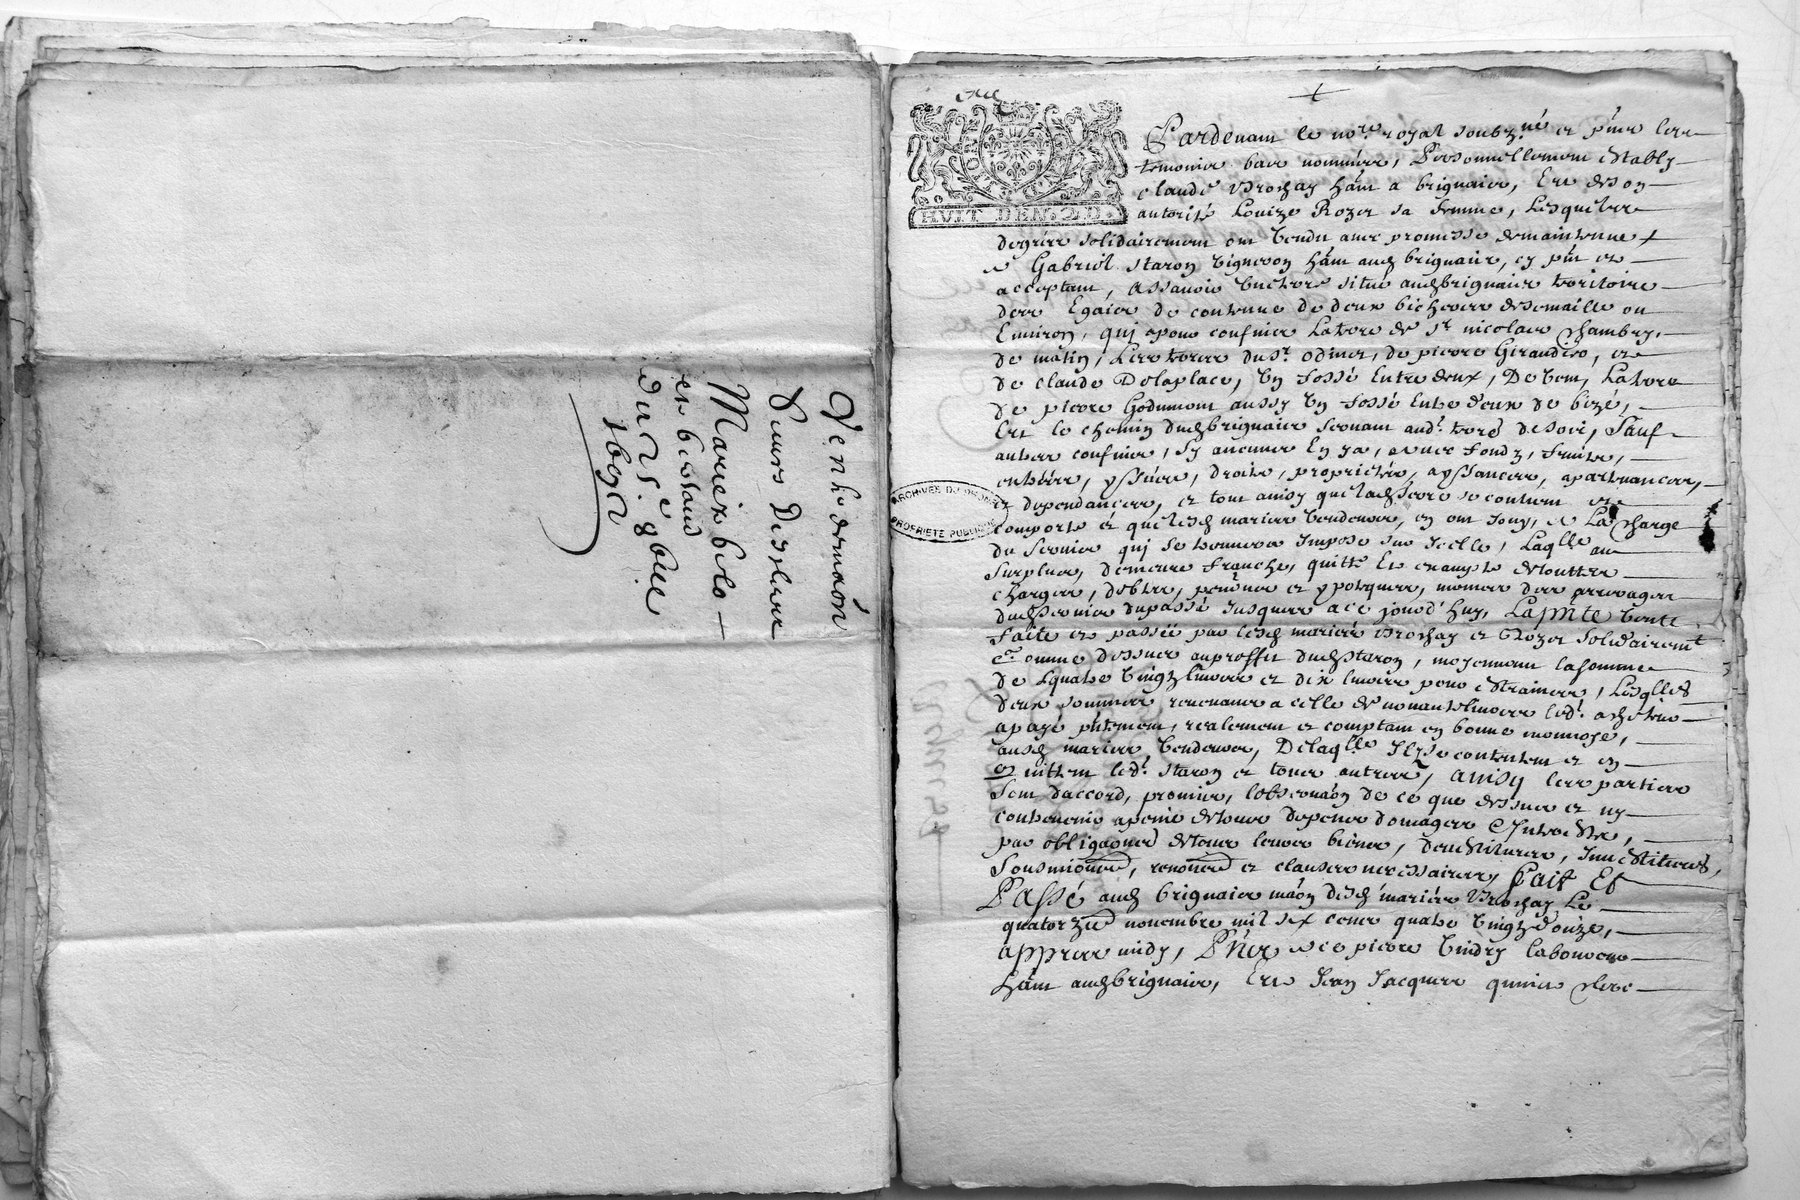 Vente de maison
Sieurs
Mariez
en
du 25e 8bre
1692
HUIT DEN.
ARCHIVES DU RHONE
PROPRIETE PUBLIQUE
Pardevant le nore royal soubzné et pnce les
temoins bas nommés, Personnellement estably
claude Brossay hant a brignais, Et de son
authorité Louize Rozet sa femme, Lesquels
de gré solidairement ont vendu avec promesse de maintenue
a Gabriel staron vigneron hant aud brignais, cy pnt et
acceptant, Assavoir une terre situé aud brignais territoire
des Egaies de contenue de deux bicherées de semaille ou
Environ, qui a pour confins La terre de sr nicolas Chambry
de matin, Les terres du sr odinet, de pierre Girandier, et
de claude Delaplace, un fossé Entre deux, De vent, La terre
de pierre Godumont aussy un fossé Entre deux de bize,
Et le chemin dud brignais servant aud. terre de soir, Sauf
autres confins, sy aucuns En y a, avec fondz, fruits,
entrées, yssues, droits, proprietés, ayssances, apartenances,
et dependances, et tout ainsy que lad terre se contient et
comporte et que lesd mariez vendeurs, en ont jouy, a La charge
du servis qui se trouvera Imposé sur Icelle, Laqlle au
surplus, demeure franche, quitte Et exempte de touttes
charges, debtes, pentions et ypoteques, mesmes des arrerages
dud servis du passé Jusques a ce jourd'huy, La pnte vente
faite et passée par lesd mariés Brossay et Rozet solidairemt
comme dessus au proffit dud staron, moyennant la somme
de quatre vingtz livres et dix livres pour estraines, Lesqlles
deux sommes revenants a celle de nonante livres led. acheteur
a payé pntement, realement et comptant en bonne monnoye,
ausd mariez vendeurs, De laqlle Ilz se contentent et en
quittent led. staron et tous autres, ainsy les parties
sont d'accord, promis, l'observaon de ce que dessus et ny
contrevenir a peine de tous depens domages Interestz,
par obligaons de tous leurs biens, devestitures, Investitures,
soubmions, renoncions et clauses necessaires, fait Et
Passé aud brignais maion desd mariés Brossay Le
quatorzie novembre mil six cents quatre vingtz douze,
apprès midy, Pnce a ce pierre vindry laboureur
hant aud brignais, Et Jean Jacques clerc